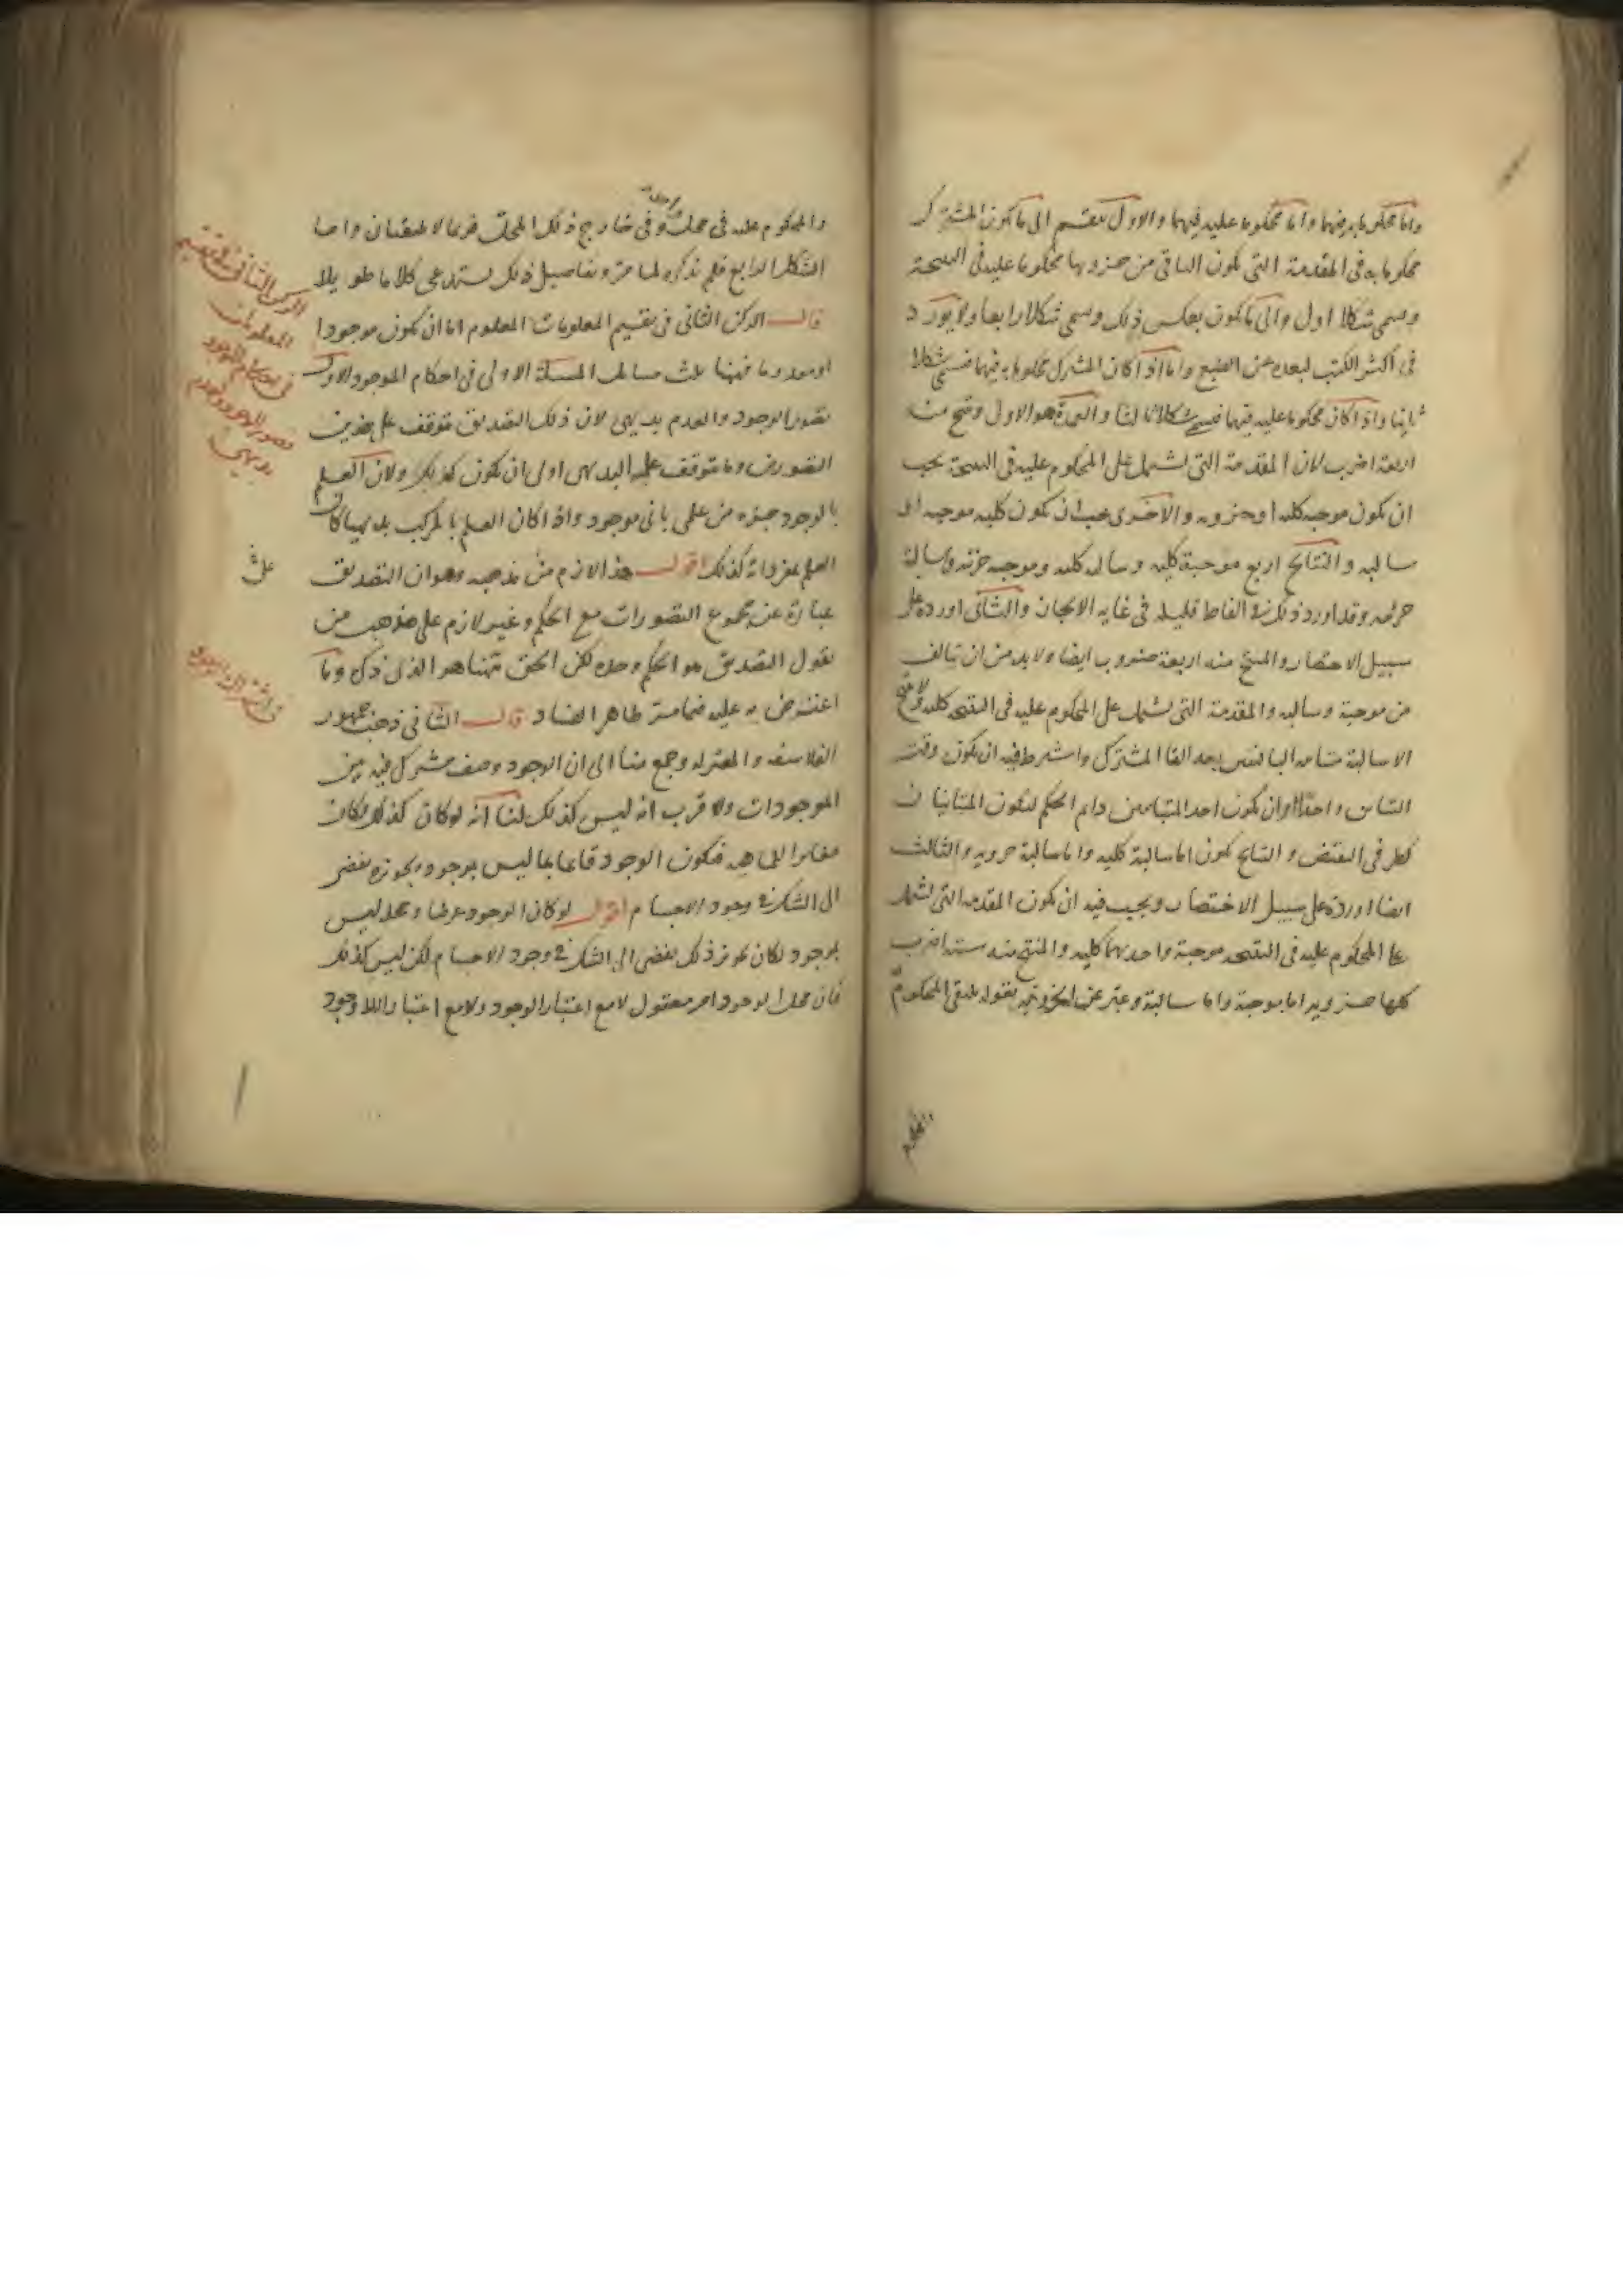 واما محكوما به فيهما واما محكوما عليه فيهما والاول ينقسم الى ما يكون المشترك
محكوما به فى المقدمة التى يكون الباقى من جزويها محكوما عليه فى النتيجة
وسمى شكلا اول والى ما يكون بعكس ذلك وسمى شكلا رابعا ولا يورد
فى اكثر الكتب لبعده عن الطبع واما اذا كان المشترك محكوما به فيهما فسمى شكلا
ثانيا واذا كان محكوما عليه فيهما فسمى شكلا ثالثا والعمدة هو الاول وينتج منه
اربعة اضرب لان المقدمة التى تشمل على المحكوم عليه فى النتيجة يجب
ان يكون موجبة كليه او جزويه والاخرى يجب ان يكون كليه موجبه او
سالبه والنتايج اربع موجبة كليه وسالبه كليه وموجبه جزئيه وسالبة
جزئيه وقد اورد ذلك فى الفاظ قليله فى غايه الايجاز والثانى اورده على
سبيل الاختصار والمنتج منه اربعة ضروب ايضا ولا بد من ان يتالف
من موجبة وسالبه والمقدمة التى تشمل على المحكوم عليه فى النتيجه كليه ولا ينتج
الا سالبة متباينه الباقيين بعد القا المشترك واشترط فيه ان يكون وقت
التباين واحدا او ان يكون احد المتباينين دايم الحكم ليكون المتباينان
فى النقيض والنتايج يكون اما سالبة كليه واما سالبة جزويه والثالث
ايضا اورده على سبيل الاختصار ويجب فيه ان يكون المقدمه التى تشمل
على المحكوم عليه فى النتيجه موجبة واحديهما كليه والمنتج منه ستة اضرب
كلها جزويه اما موجبة واما سالبة وعبر عن الجزويه بقوله يلتقى المحكوم به
والمحكوم
والمحكوم عليه فى محله وفى خارج ذلك المحل فربما لا يلتقيان واما
الشكل الرابع فلم نذكره لما مر وتفاصيل ذلك يستدعى كلاما طويلا
قال الركن الثانى فى تقسيم المعلومات المعلوم اما ان يكون موجودا
او معدوما فهنا ثلث مسايل المسئلة الاولى فى احكام الموجود الاول
تصور الوجود والعدم بديهى لان ذلك التصديق متوقف على هذين
التصورين وما يتوقف عليه البديهى اولى ان يكون كذلك ولان العلم
بالوجود جزء من علمى بانى موجود واذا كان العلم بالمركب بديهيا كان
العلم بمفرداته كذلك اقول هذا لازم من مذهبه وهو ان التصديق
عبارة عن مجموع التصورات مع الحكم وغير لازم على مذهب من
يقول التصديق هو الحكم وحده لكن الحق ههنا هو الذى ذكره وما
اعترض به عليه فيما مر ظاهر الفساد قال الثانى ذهب جمهور
الفلاسفه والمعتزله وجمع منا الى ان الوجود وصف مشترك فيه بين
الموجودات والاقرب انه ليس كذلك لنا انه لو كان كذلك لكان
مغايرا للماهيه فيكون الوجود قايما بما ليس بموجود وتجويزه يفضى
الى الشك فى وجود الاجسام اقول لو كان الوجود عرضا ومحله ليس
بموجود لكان تجويز ذلك يفضى الى الشك فى وجود الاجسام لكن ليس كذلك
فان محل الوجود امر معقول لا مع اعتبار الوجود ولا مع اعتبار اللاوجود
الركن الثانى فى تقسيم
المعلومات
فى احكام الموجود
تصور الوجود والعدم
بديهى
فى اشتراك الوجود